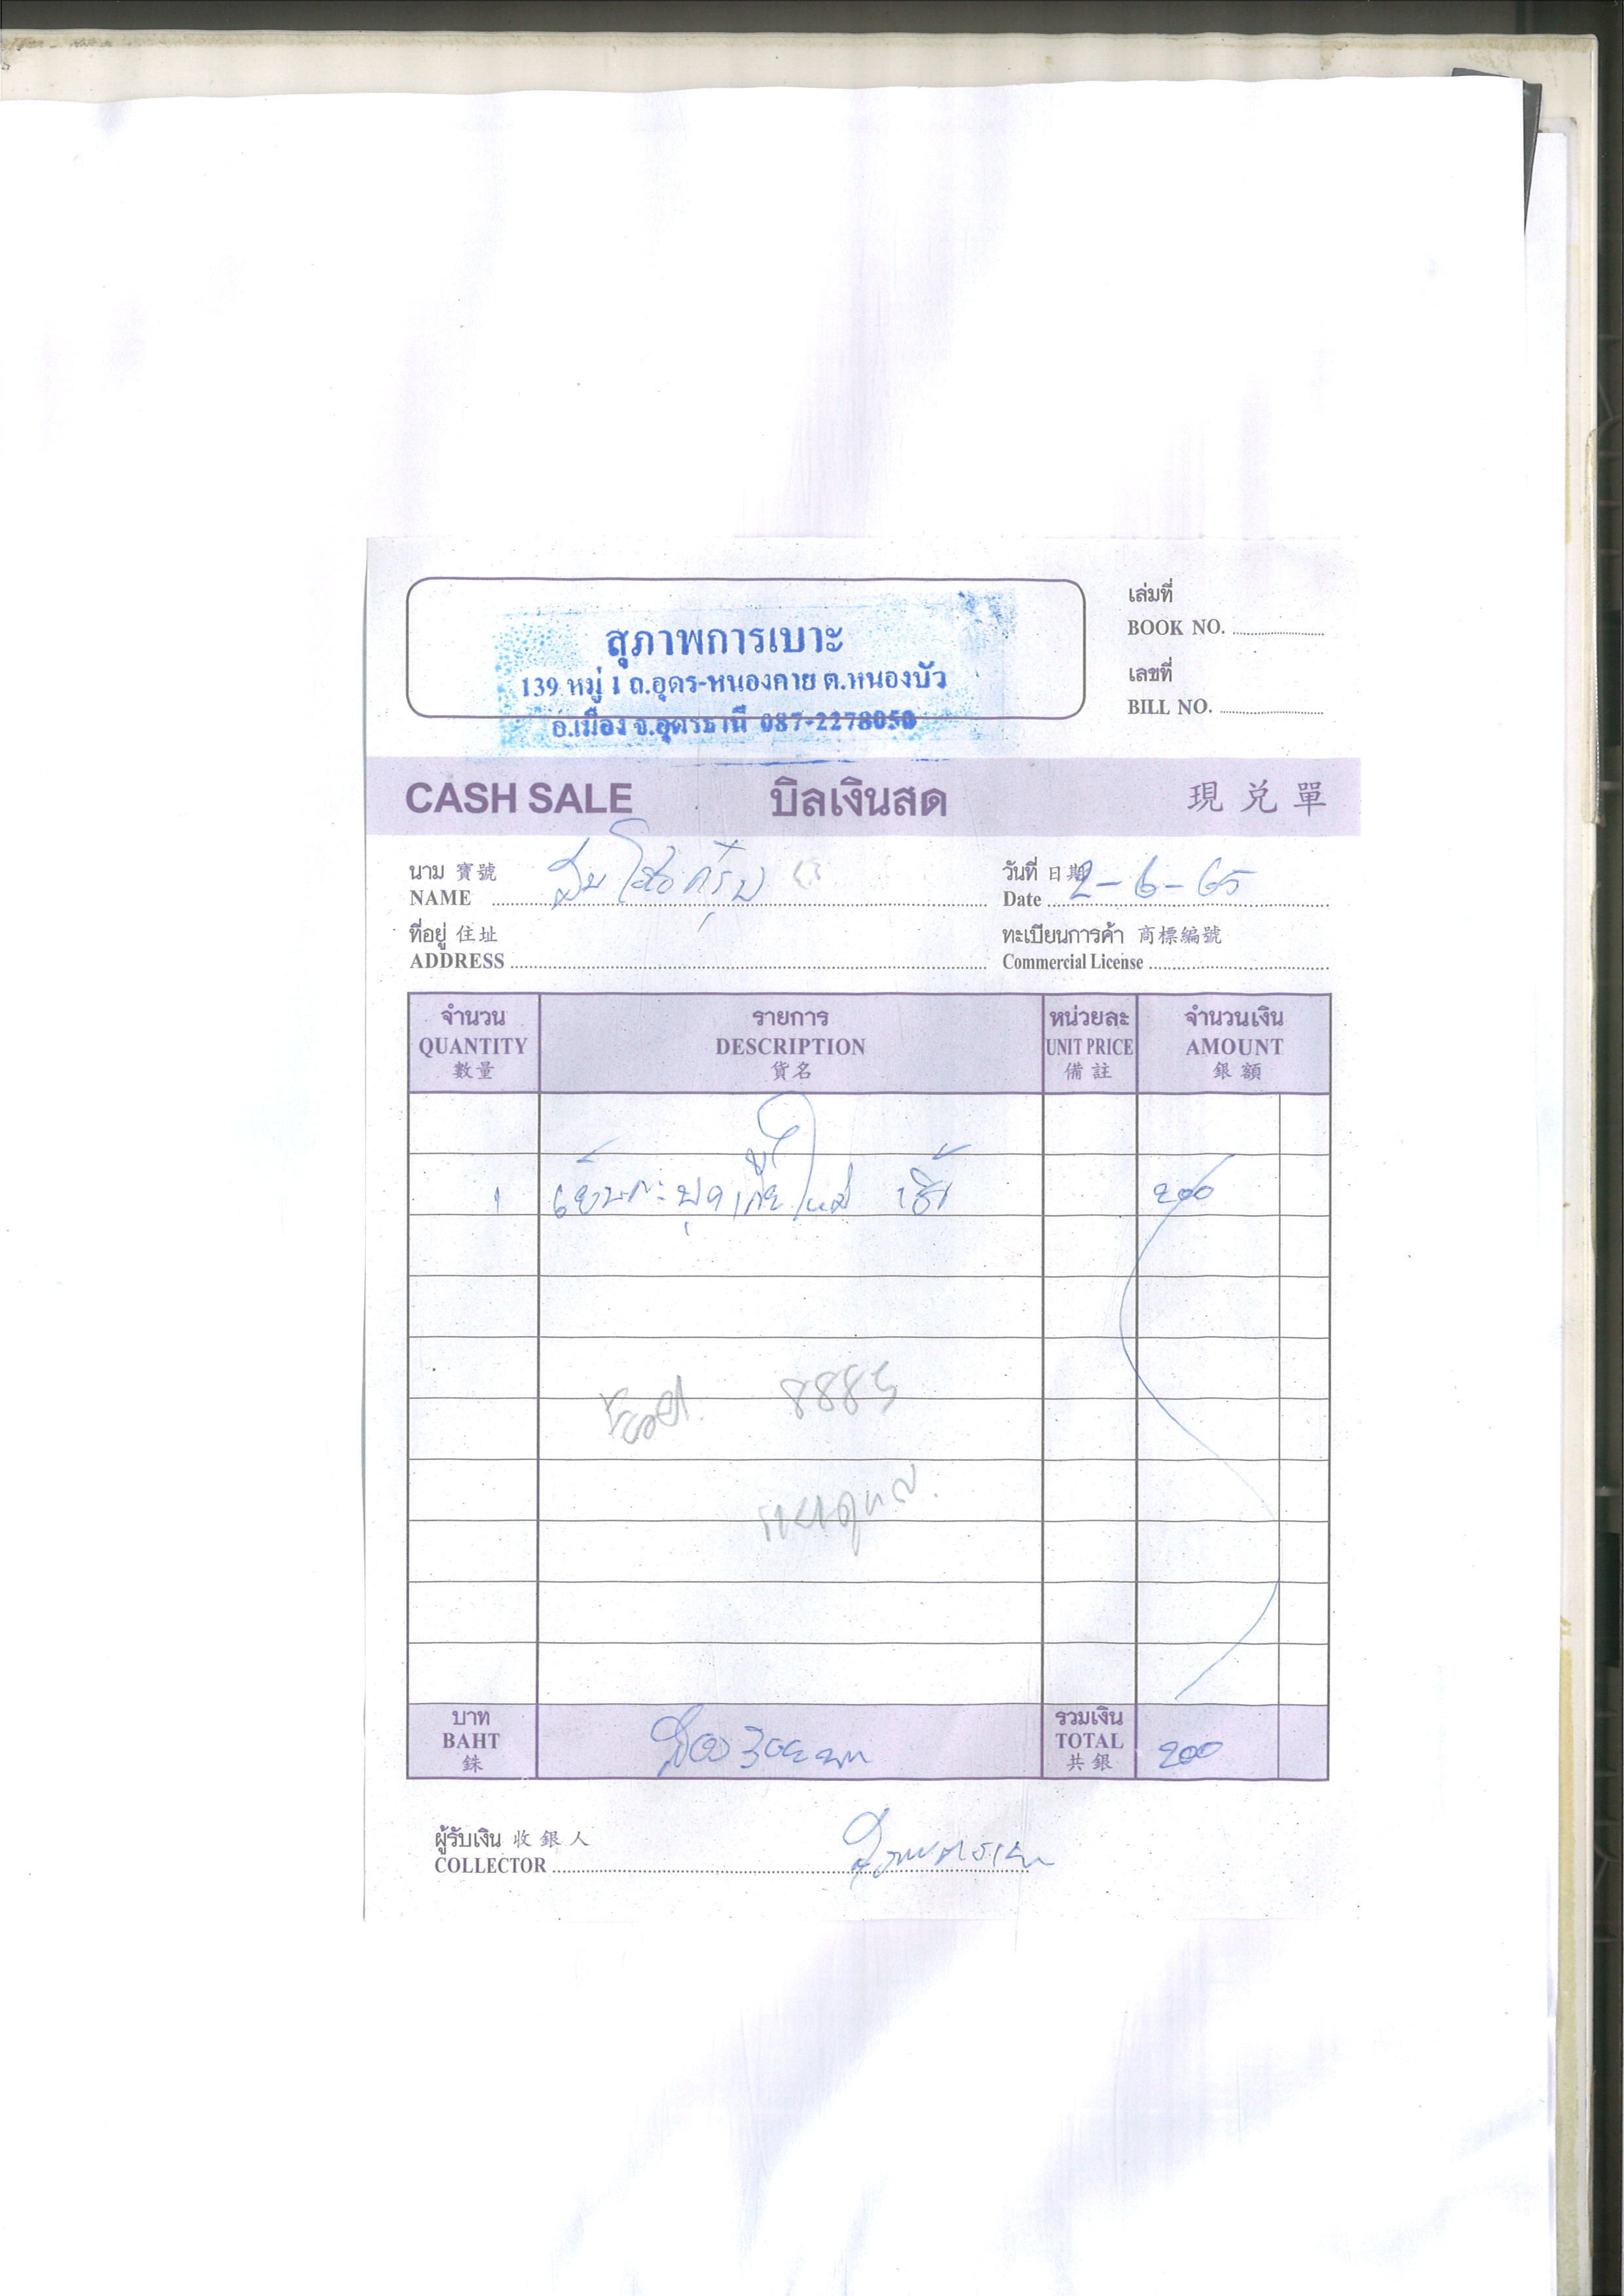 สุภาพการเบาะ
139 หมู่ 1 ถ.อุดร-หนองคาย ต.หนองบัว
อ.เมือง จ.อุดรธานี 087-2278050
เล่มที่
BOOK NO.
เลขที่
BILL NO.
CASH SALE บิลเงินสด 現兌單
นาม 寶號
NAME
วันที่ 日期
Date 2-6-65
ที่อยู่ 住址
ADDRESS
ทะเบียนการค้า 商標編號
Commercial License
จำนวน รายการ หน่วยละ จำนวนเงิน
QUANTITY DESCRIPTION UNIT PRICE AMOUNT
數量 貨名 備註 銀額
1 200
8885
บาท รวมเงิน
BAHT สองร้อยบาท TOTAL 200
銖 共銀
ผู้รับเงิน 收銀人
COLLECTOR